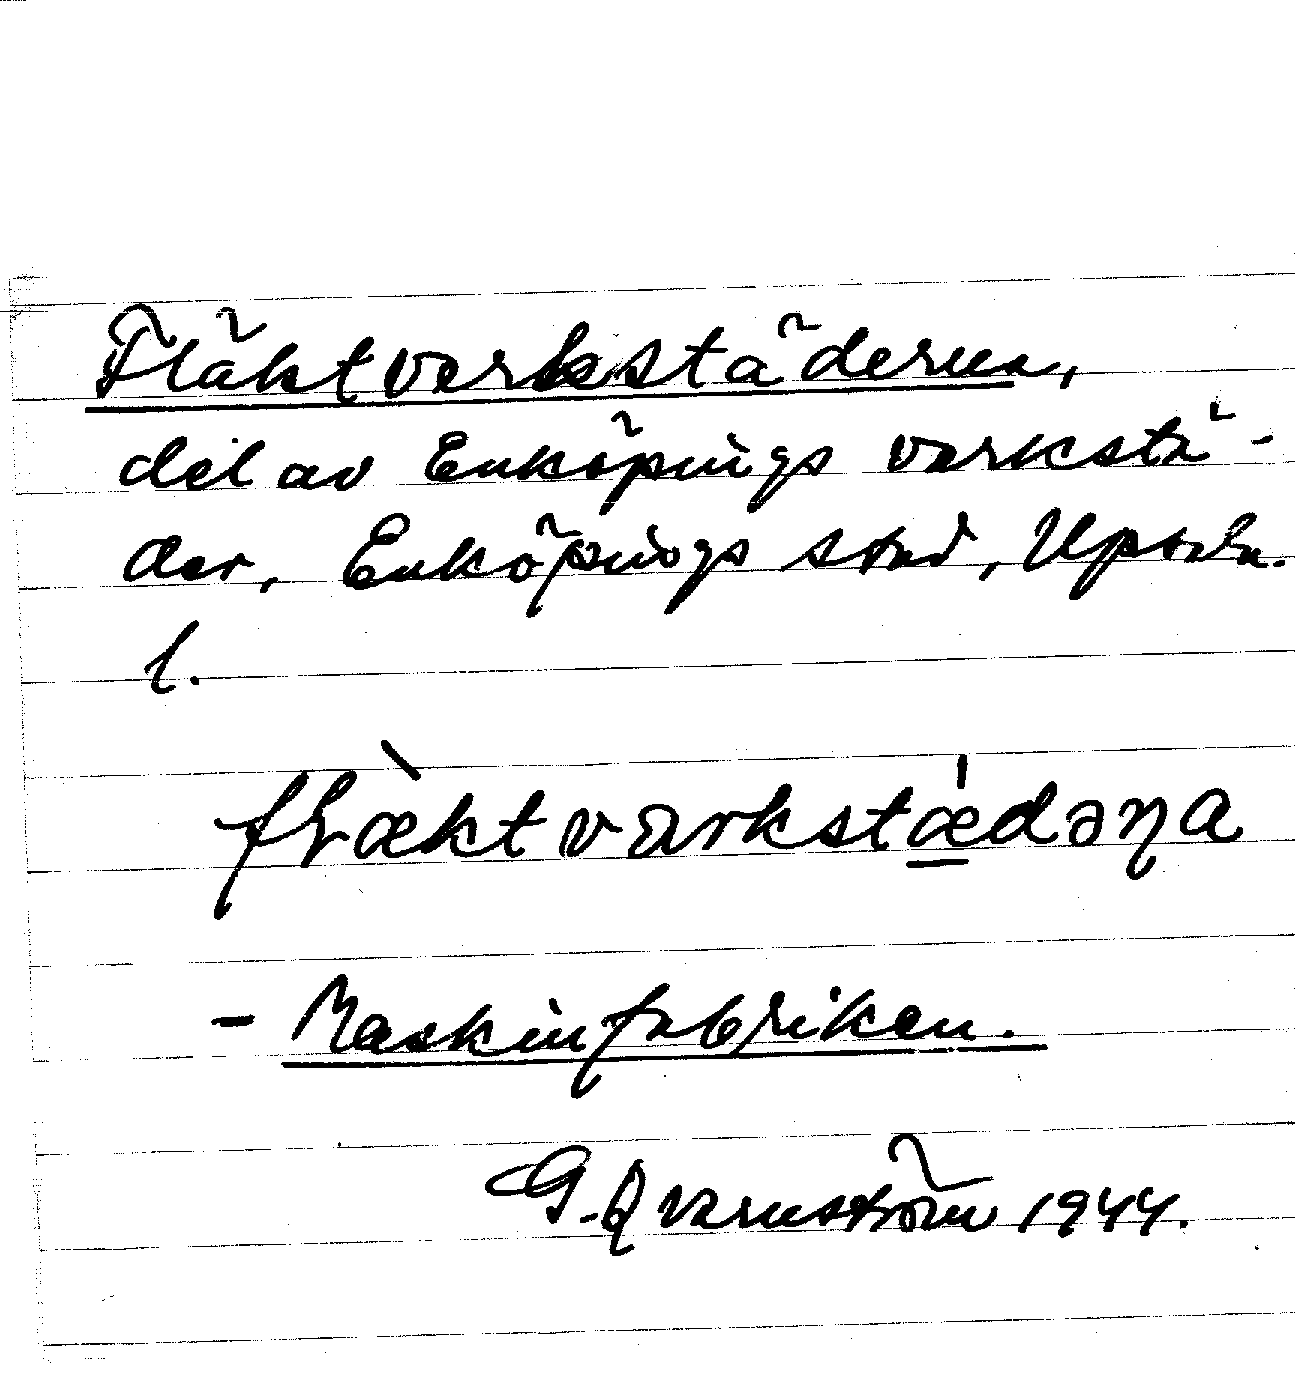 Fläktverkstäderna,
del av Enköpings verkstä-
der, Enköpings stad, Upsala.
l.
flæktvarkstædəɳa
- Maskinfabriken.
G. Qvarnström 1944.